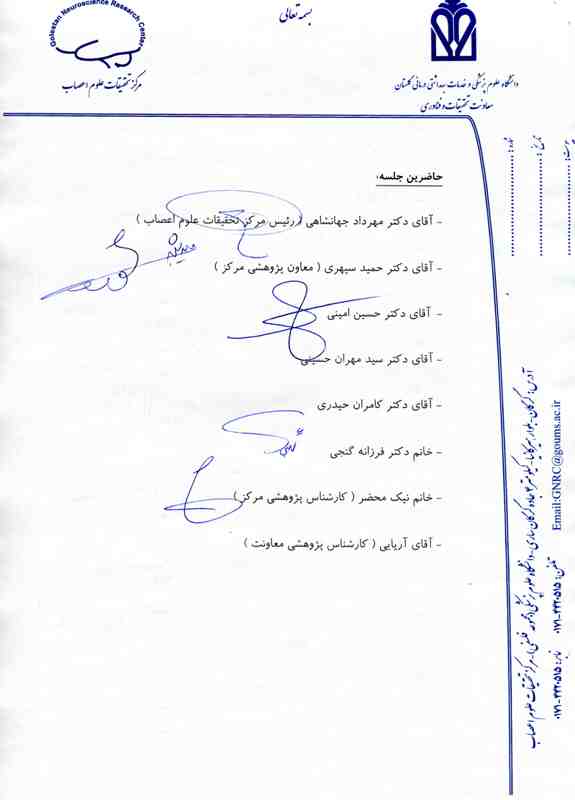 Golestan Neuroscience Research Center
مرکز تحقیقات علوم اعصاب
بسمه تعالی
دانشگاه علوم پزشکی و خدمات بهداشتی درمانی گلستان
معاونت تحقیقات و فناوری
شماره :
تاریخ :
پیوست :
حاضرین جلسه:
- آقای دکتر مهرداد جهانشاهی ( رئیس مرکز تحقیقات علوم اعصاب )
- آقای دکتر حمید سپهری ( معاون پژوهشی مرکز )
- آقای دکتر حسین امینی
- آقای دکتر سید مهران حسینی
- آقای دکتر کامران حیدری
- خانم دکتر فرزانه گنجی
- خانم نیک محضر ( کارشناس پژوهشی مرکز )
- آقای آریایی ( کارشناس پژوهشی معاونت )
آدرس: گرگان- ابتدای جاده گرگان ساری- دانشگاه علوم پزشکی - مرکز تحقیقات علوم اعصاب
تلفن: ۰۱۷۱-۴۴۲۰۵۱۵ نمابر: ۰۱۷۱-۴۴۲۰۵۱۵
Email:GNRC@goums.ac.ir